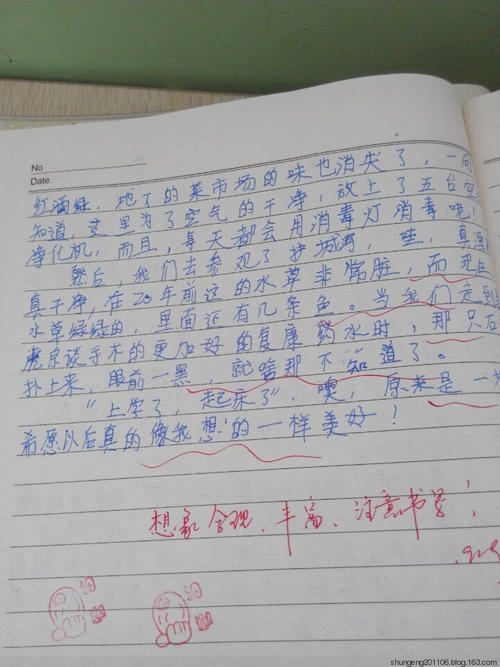 No
Date
红酒绿。地下的菜市场的味也消失了，一问
知道，这里为了空气的干净，放上了五台空
净化机，而且，每天都会用消毒灯消毒呢！
然后，我们去参观了护城河，哇，真
真干净，在20年前这的水草非常脏，而现在
水草绿绿的，里面还有几条鱼。当我们走到
手术的更加好的复康药水时，那只
扑上来，眼前一黑，就啥都不知道了。
“上学了，起床了”，噢，原来是一
希愿以后真的像我想的一样美好！
想象合理、丰富、注意书写！
shungeng201106.blog.163.com